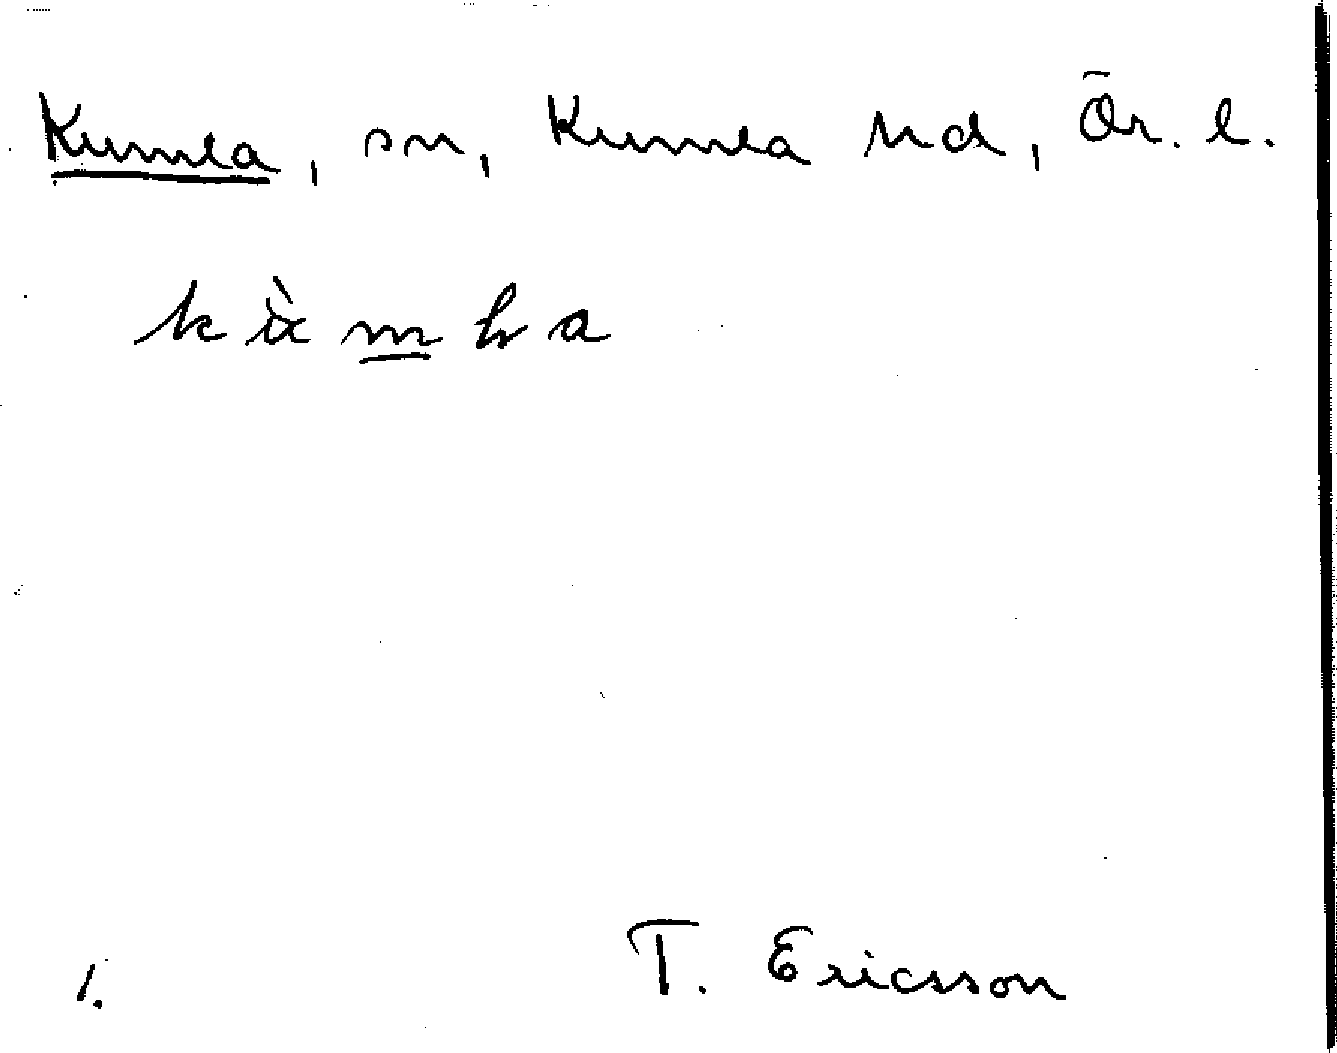 Kumla, sn, Kumla hd, Ör. l.
T. Ericsson
1.